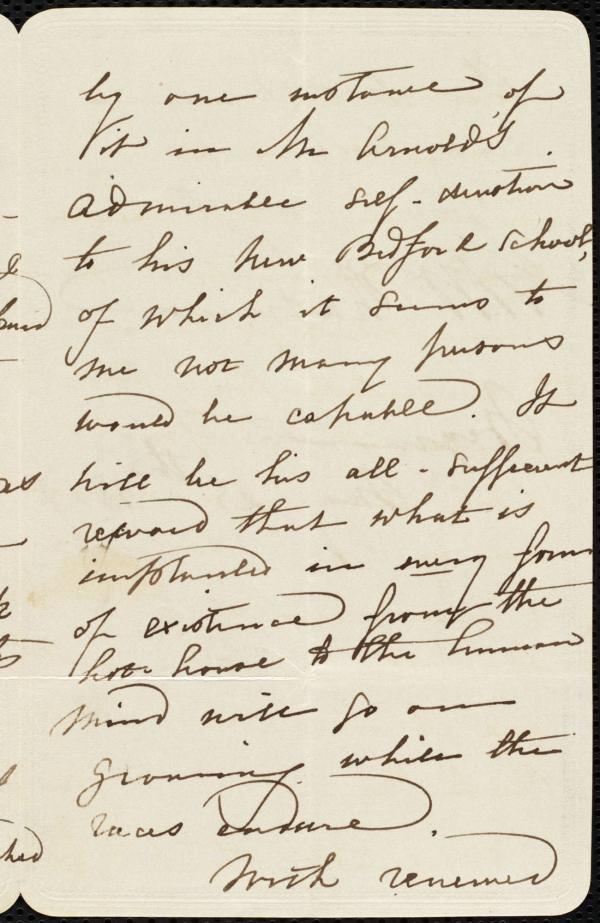 by one instance of
it in Mr Arnold's
admirable self-devotion
to his New Bedford School,
of which it seems to
me not many persons
would be capable. It
will be his all-sufficient
reward that what is
implanted in every form
of existence from the
hot house to the human
mind will go on
growing while the
races endure.
With renewed